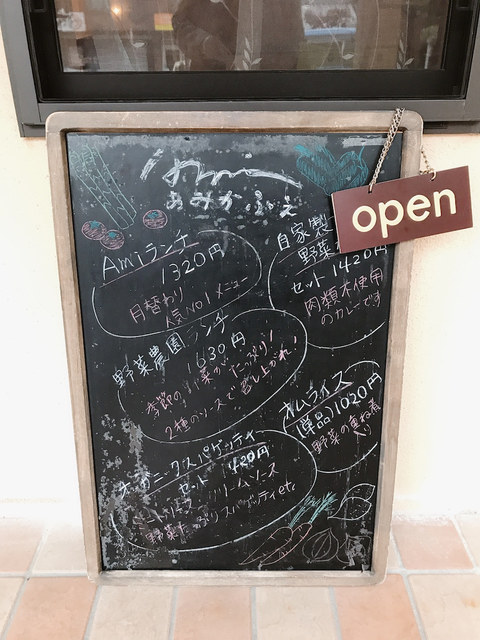 あみかふぇ
open
Amiランチ
1320円
日替わり
人気No1メニュー
自家製
野菜
セット 1420円
肉類不使用
のカレーです
野菜農園ランチ
1630円
季節の野菜が たっぷり!
2種のソースで召し上がれ!
オムライス
(単品)1020円
野菜の重ね煮
入り
オーガニックスパゲッティ
セット 1420円
ソース
野菜たっぷりスパゲティetc